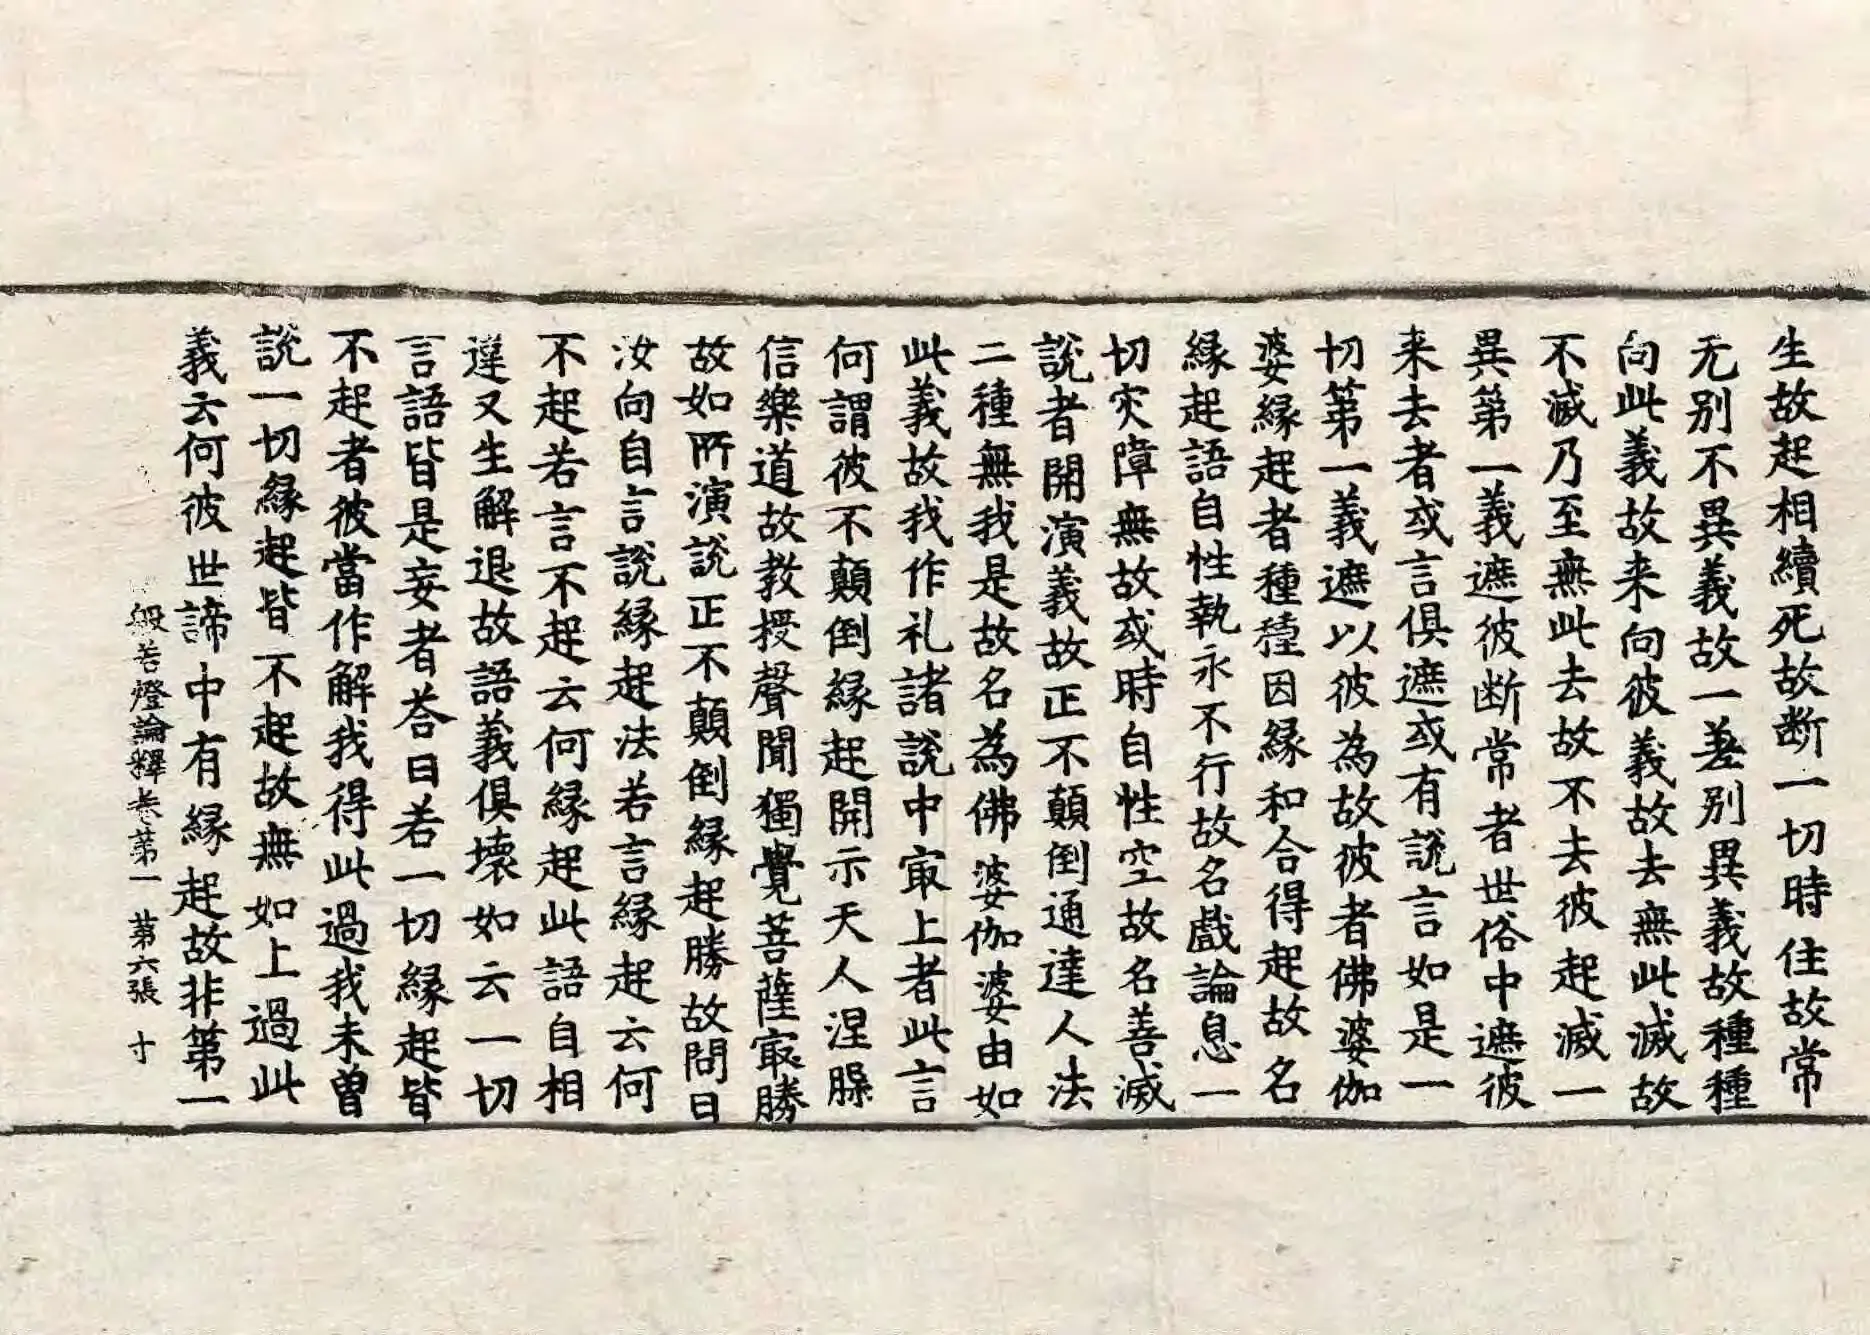 生故起相續死故断一切時住故常
无別不異義故一差別異義故種種
向此義故来向彼義故去無此滅故
不滅乃至無此去故不去彼起滅一
異第一義遮彼断常者世俗中遮彼
来去者或言俱遮或有說言如是一
切第一義遮以彼為故彼者佛婆伽
婆緣起者種種因緣和合得起故名
緣起語自性執永不行故名戲論息一
切灾障無故或時自性空故名善滅
說者開演義故正不顛倒通達人法
二種無我是故名為佛婆伽婆由如
此義故我作礼諸說中㝡上者此言
何謂彼不顛倒緣起開示天人涅槃
信樂道故教授聲聞獨覺菩薩㝡勝
故如所演說正不顛倒緣起勝故問曰
汝向自言說緣起法若言緣起云何
不起若言不起云何緣起此語自相
違又生解退故語義俱壞如云一切
言語皆是妄者荅曰若一切緣起皆
不起者彼當作解我得此過我未曾
說一切緣起皆不起故無如上過此
義云何彼世諦中有緣起故非第一
般若燈論釋卷第一 第六張 寸